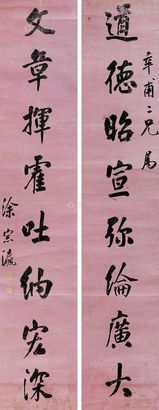 辛甫二兄屬
道德昭宣弥綸廣大
文章揮霍吐納宏深
涂宗瀛